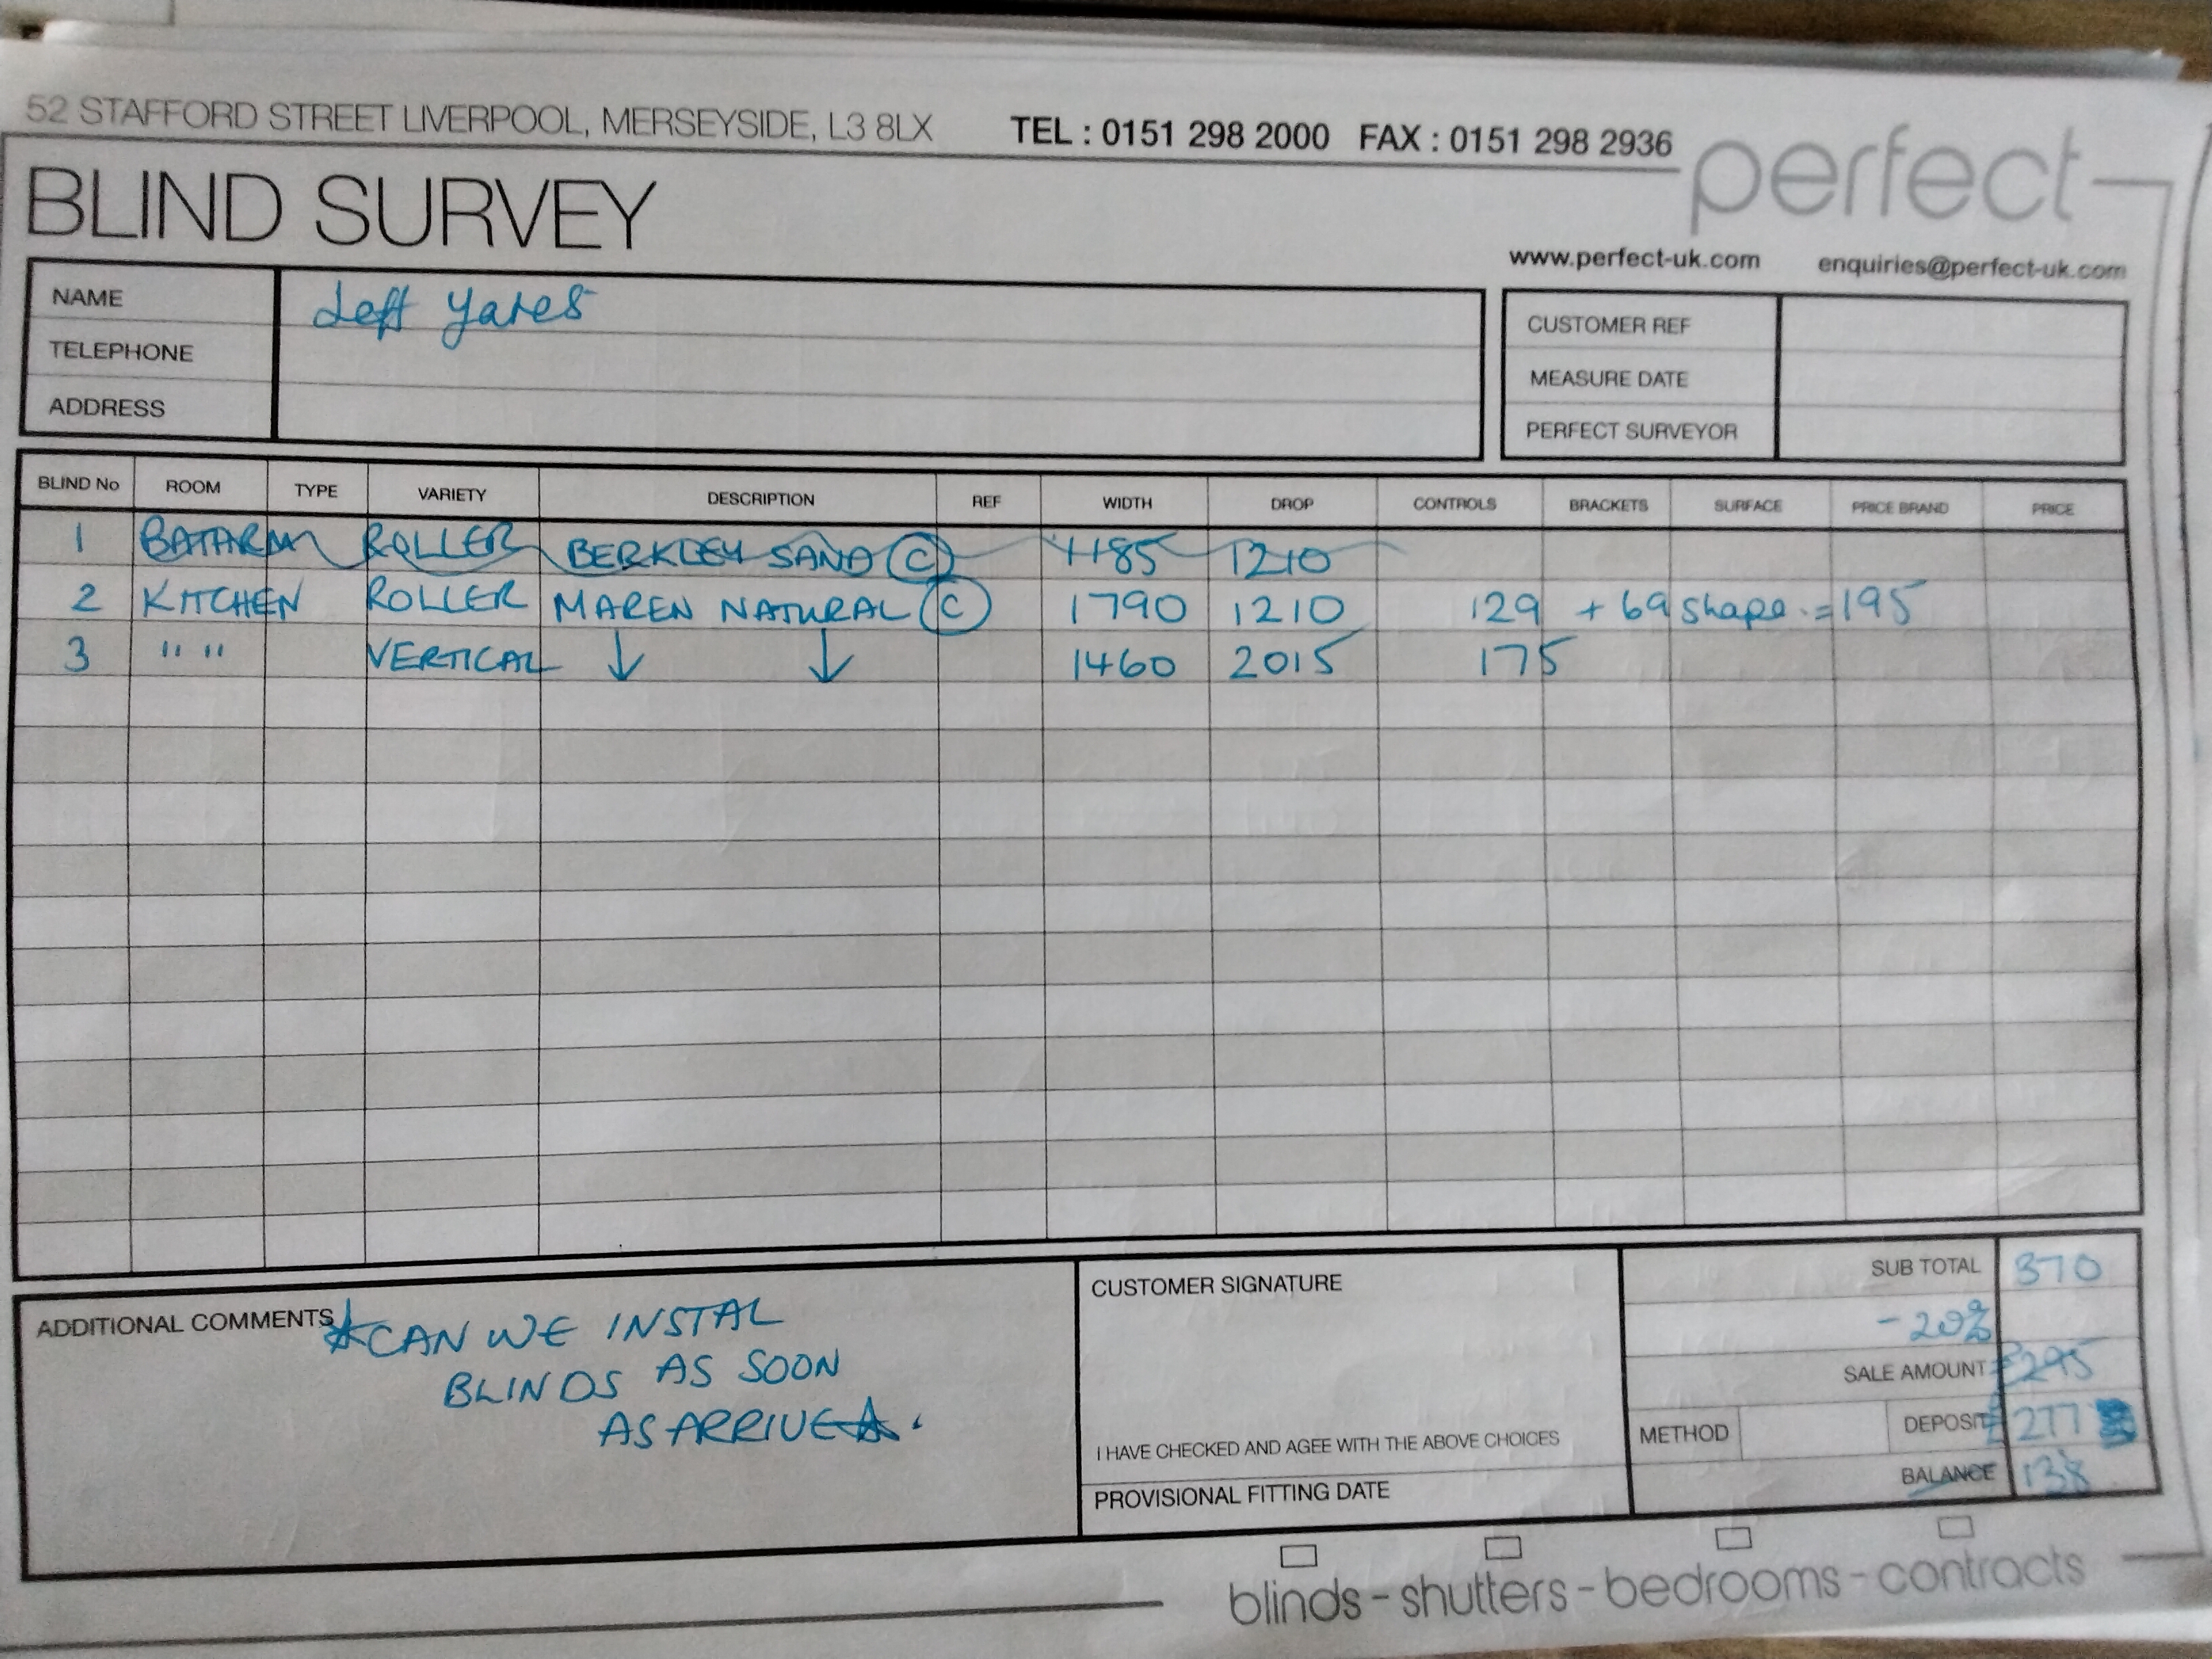 52 STAFFORD STREET LIVERPOOL, MERSEYSIDE, L3 8LX TEL : 0151 298 2000 FAX : 0151 298 2936
perfect
BLIND SURVEY
www.perfect-uk.com enquiries@perfect-uk.com
NAME Jeff Yates
TELEPHONE
ADDRESS
CUSTOMER REF
MEASURE DATE
PERFECT SURVEYOR
BLIND No ROOM TYPE VARIETY DESCRIPTION REF WIDTH DROP CONTROLS BRACKETS SURFACE PRICE BRAND PRICE
1 BATHRM ROLLER BERKLEY SAND C 1185 1210
2 KITCHEN ROLLER MAREN NATURAL C 1790 1210 129 + 69 shape = 195
3 " " " " VERTICAL ↓ ↓ 1460 2015 175
ADDITIONAL COMMENTS
CAN WE INSTAL
BLINDS AS SOON
AS ARRIVE
CUSTOMER SIGNATURE
I HAVE CHECKED AND AGEE WITH THE ABOVE CHOICES
PROVISIONAL FITTING DATE
SUB TOTAL 370
- 20%
SALE AMOUNT £295
METHOD DEPOSIT £277
BALANCE 138
blinds - shutters - bedrooms - contracts